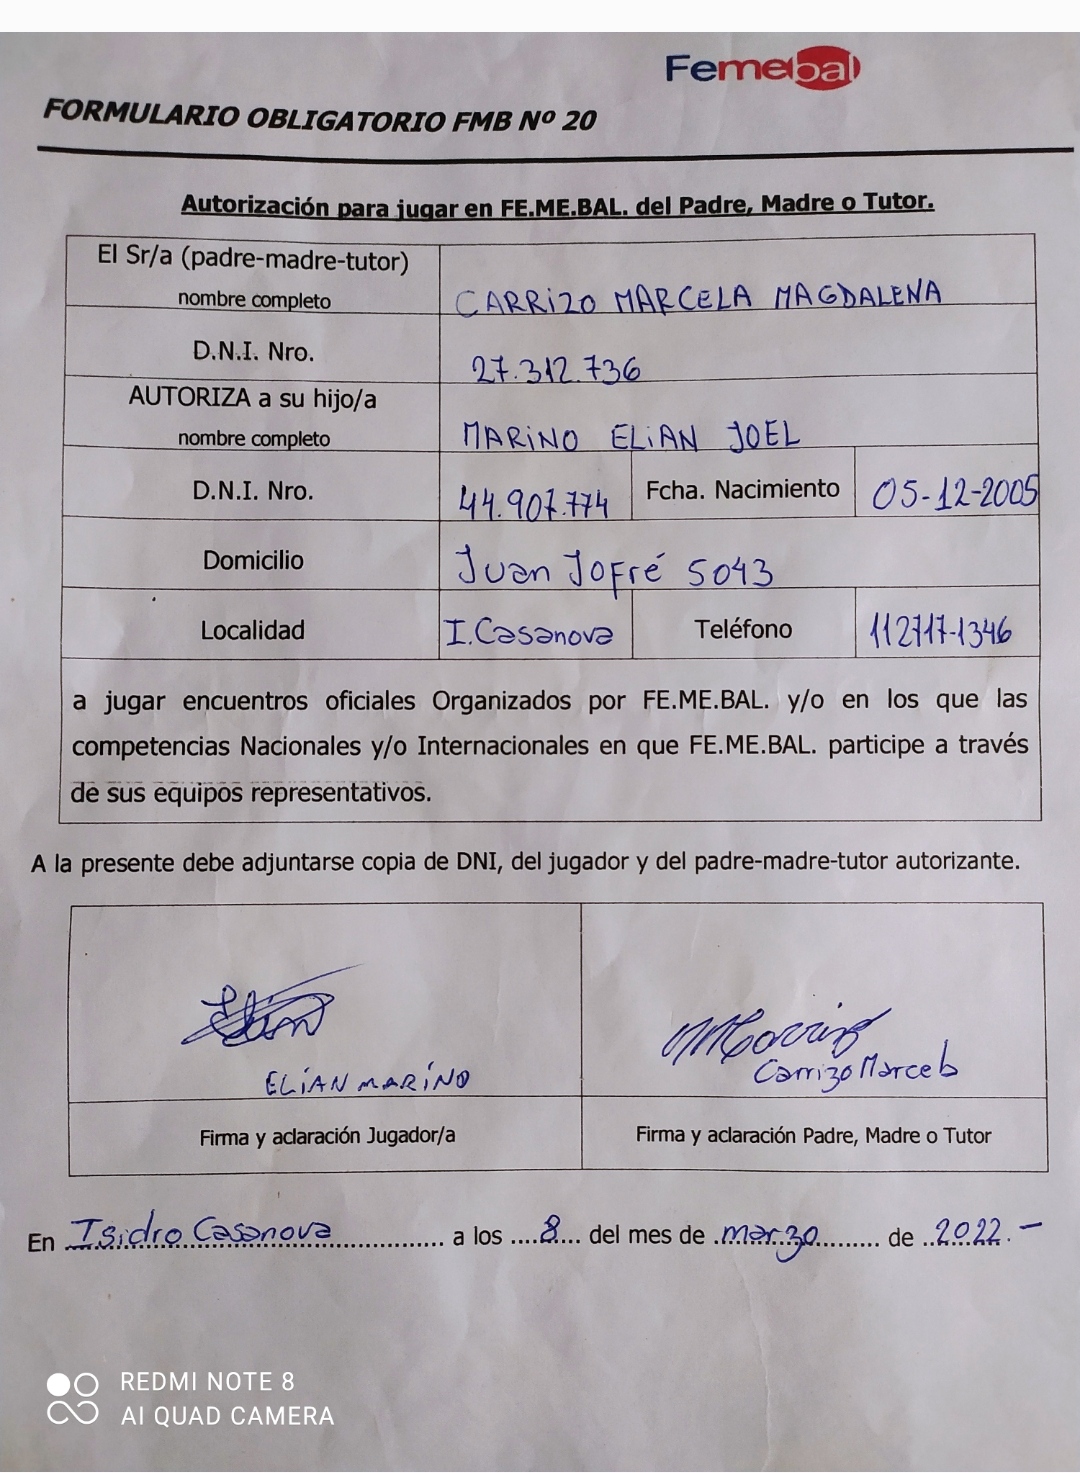 Femebal
FORMULARIO OBLIGATORIO FMB Nº 20
Autorización para jugar en FE.ME.BAL. del Padre, Madre o Tutor.
El Sr/a (padre-madre-tutor)
nombre completo
CARRIZO MARCELA MAGDALENA
D.N.I. Nro.
27.312.736
AUTORIZA a su hijo/a
nombre completo
MARINO ELIAN JOEL
D.N.I. Nro.
44.907.774
Fcha. Nacimiento
05-12-2005
Domicilio
Juan Jofré 5043
Localidad
I.Casanova
Teléfono
112717-1346
a jugar encuentros oficiales Organizados por FE.ME.BAL. y/o en los que las
competencias Nacionales y/o Internacionales en que FE.ME.BAL. participe a través
de sus equipos representativos.
A la presente debe adjuntarse copia de DNI, del jugador y del padre-madre-tutor autorizante.
Elian
ELIAN MARINO
MCarrizo
Carrizo Marcela
Firma y aclaración Jugador/a
Firma y aclaración Padre, Madre o Tutor
En Isidro Casanova a los 8 del mes de marzo de 2022.-
REDMI NOTE 8
AI QUAD CAMERA